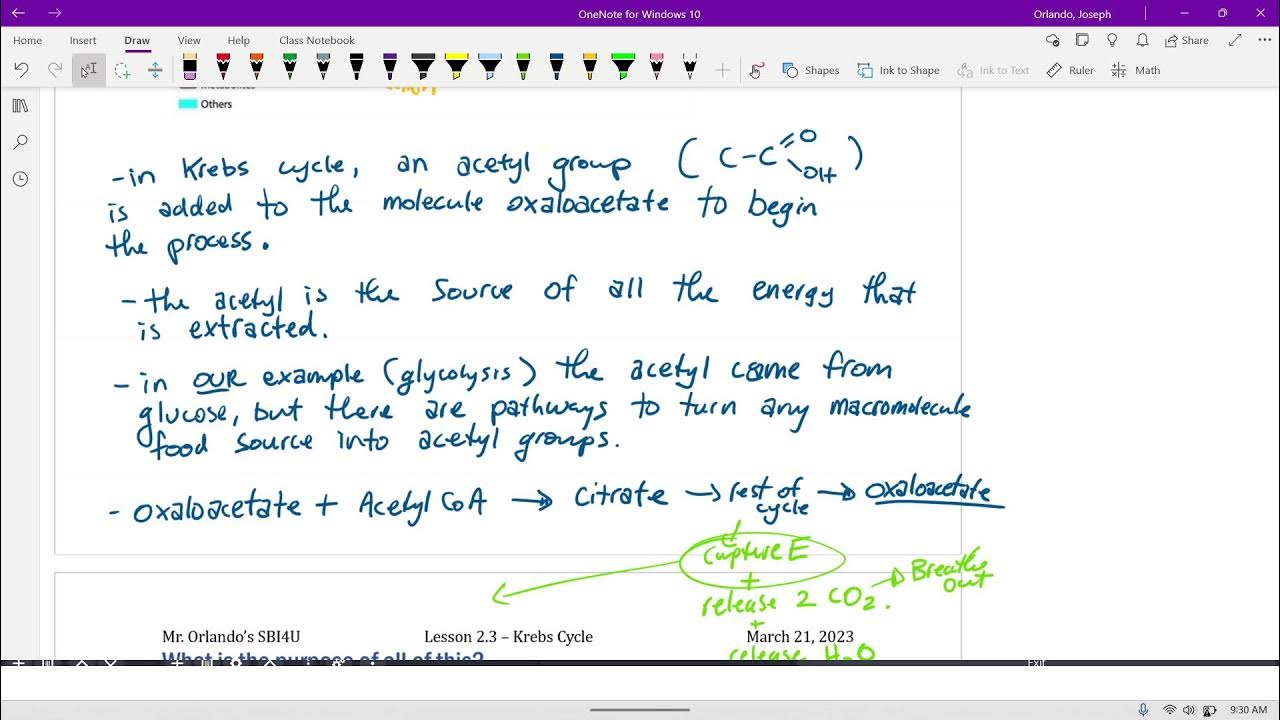 OneNote for Windows 10
Orlando, Joseph
Home Insert Draw View Help Class Notebook
Share
Shapes Ink to Shape Ink to Text Ruler Math
Others
- in Krebs cycle, an acetyl group ( C-C=O OH )
is added to the molecule oxaloacetate to begin
the process.
- the acetyl is the source of all the energy that
is extracted.
- in OUR example (glycolysis) the acetyl came from
glucose, but there are pathways to turn any macromolecule
food source into acetyl groups.
- oxaloacetate + Acetyl CoA → citrate → rest of cycle → oxaloacetate
capture E
+
release 2 CO2. → Breathe out
+
release H2O
Mr. Orlando's SBI4U Lesson 2.3 – Krebs Cycle March 21, 2023
What is the purpose of all of this?
Exit
9:30 AM